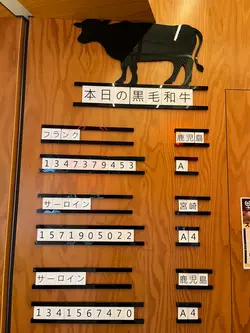 本日の黒毛和牛
フランク 鹿児島
1347379453 A
サーロイン 宮崎
1571905022 A4
サーロイン 鹿児島
1341567470 A4